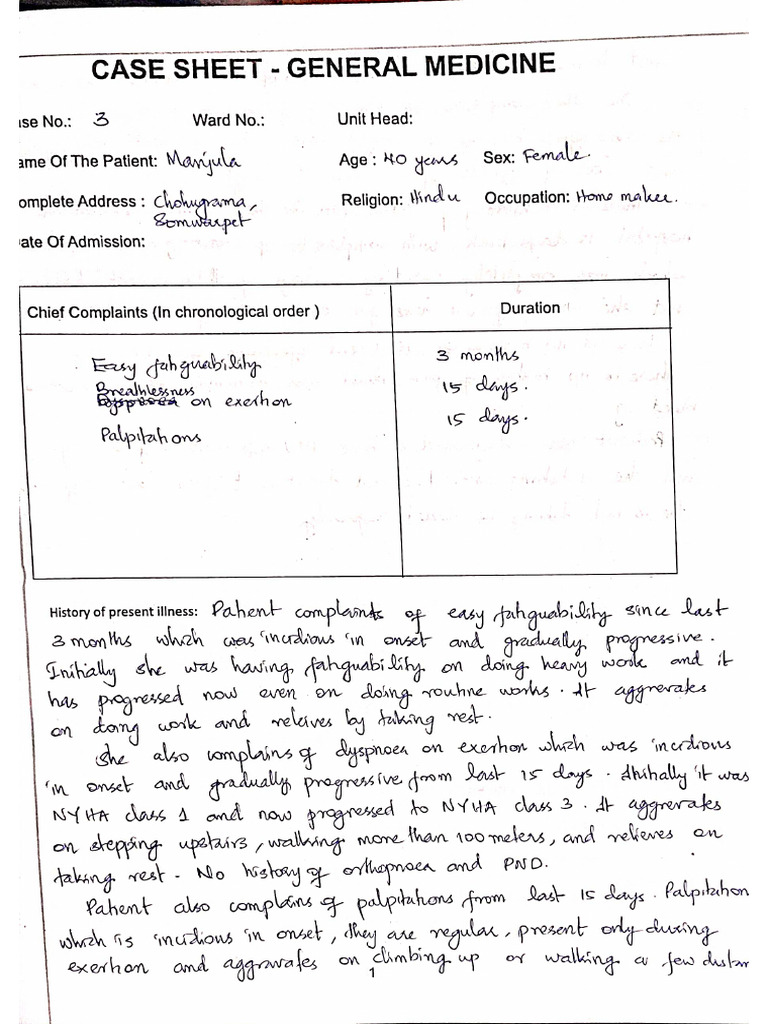 CASE SHEET - GENERAL MEDICINE
se No.: 3 Ward No.: Unit Head:
ame Of The Patient: Manjula Age : 40 years Sex: Female.
omplete Address : Chohugrama, Religion: Hindu Occupation: Home maker.
Somwarpet
ate Of Admission:
Chief Complaints (In chronological order ) Duration
Easy fatiguability 3 months
Breathlessness
Dyspnoea on exertion 15 days.
Palpitations 15 days.
History of present illness: Patient complaints of easy fatiguability since last
3 months which was incidious in onset and gradually progressive.
Initially she was having fatiguability on doing heavy work and it
has progressed now even on doing routine works. It aggrevates
on doing work and releives by taking rest.
She also complains of dyspnoea on exertion which was incidious
in onset and gradually progressive from last 15 days. Initially it was
NYHA class 1 and now progressed to NYHA class 3. It aggrevates
on stepping upstairs, walking more than 100 meters, and relieves on
taking rest. No history of orthopnoea and PND.
Patient also complains of palpitations from last 15 days. Palpitation
which is incidious in onset, they are regular, present only during
exertion and aggravates on climbing up or walking a few distan
1